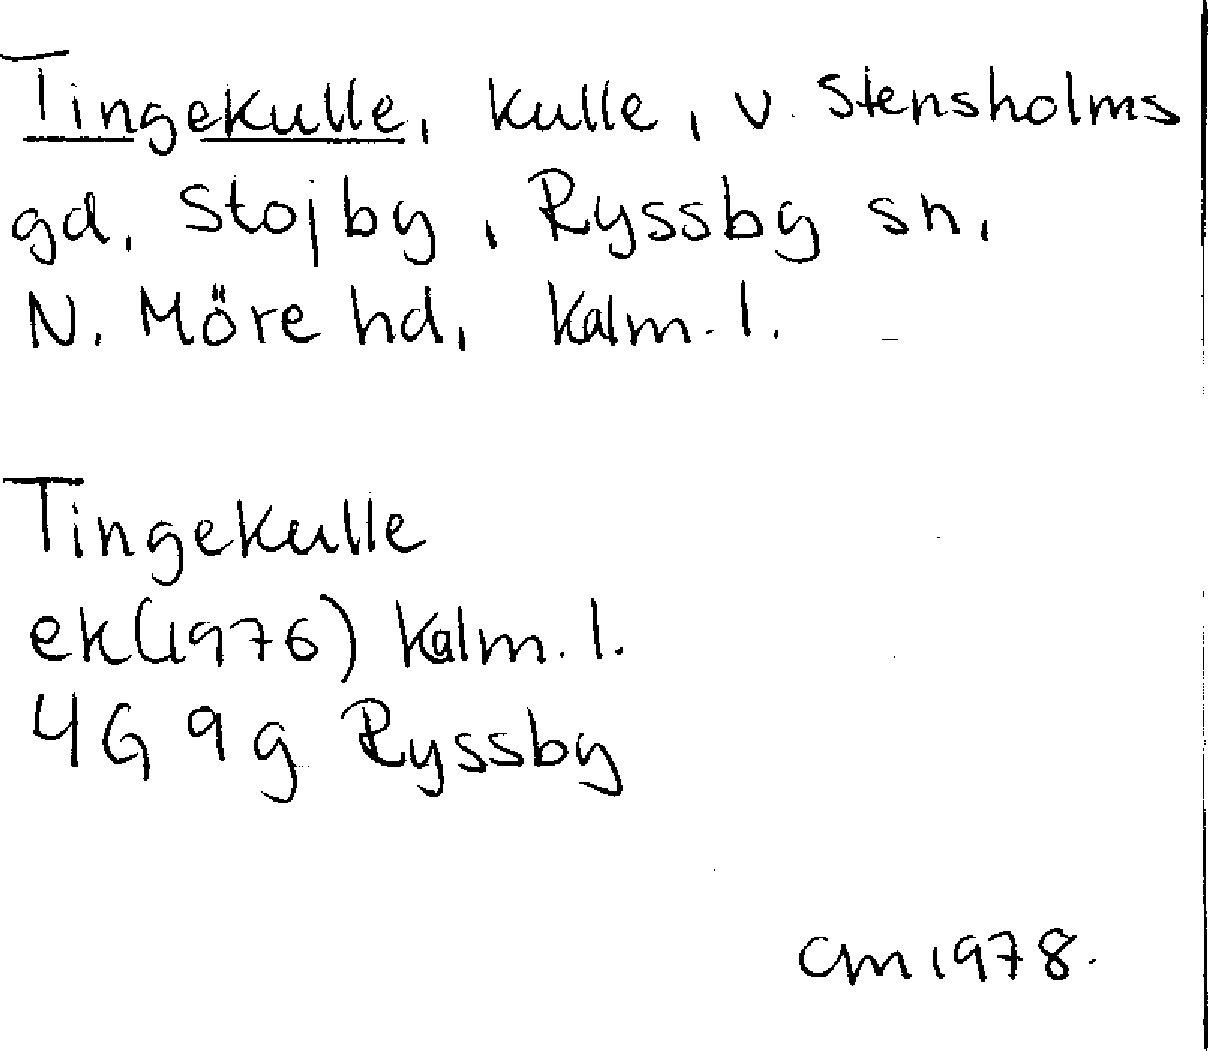 Tingekulle, kulle, v. Stensholms
gd, Stojby, Ryssby sn,
N. Möre hd, Kalm. l.
Tingekulle
ek(1976) Kalm. l.
4G 9g Ryssby
CM 1978.